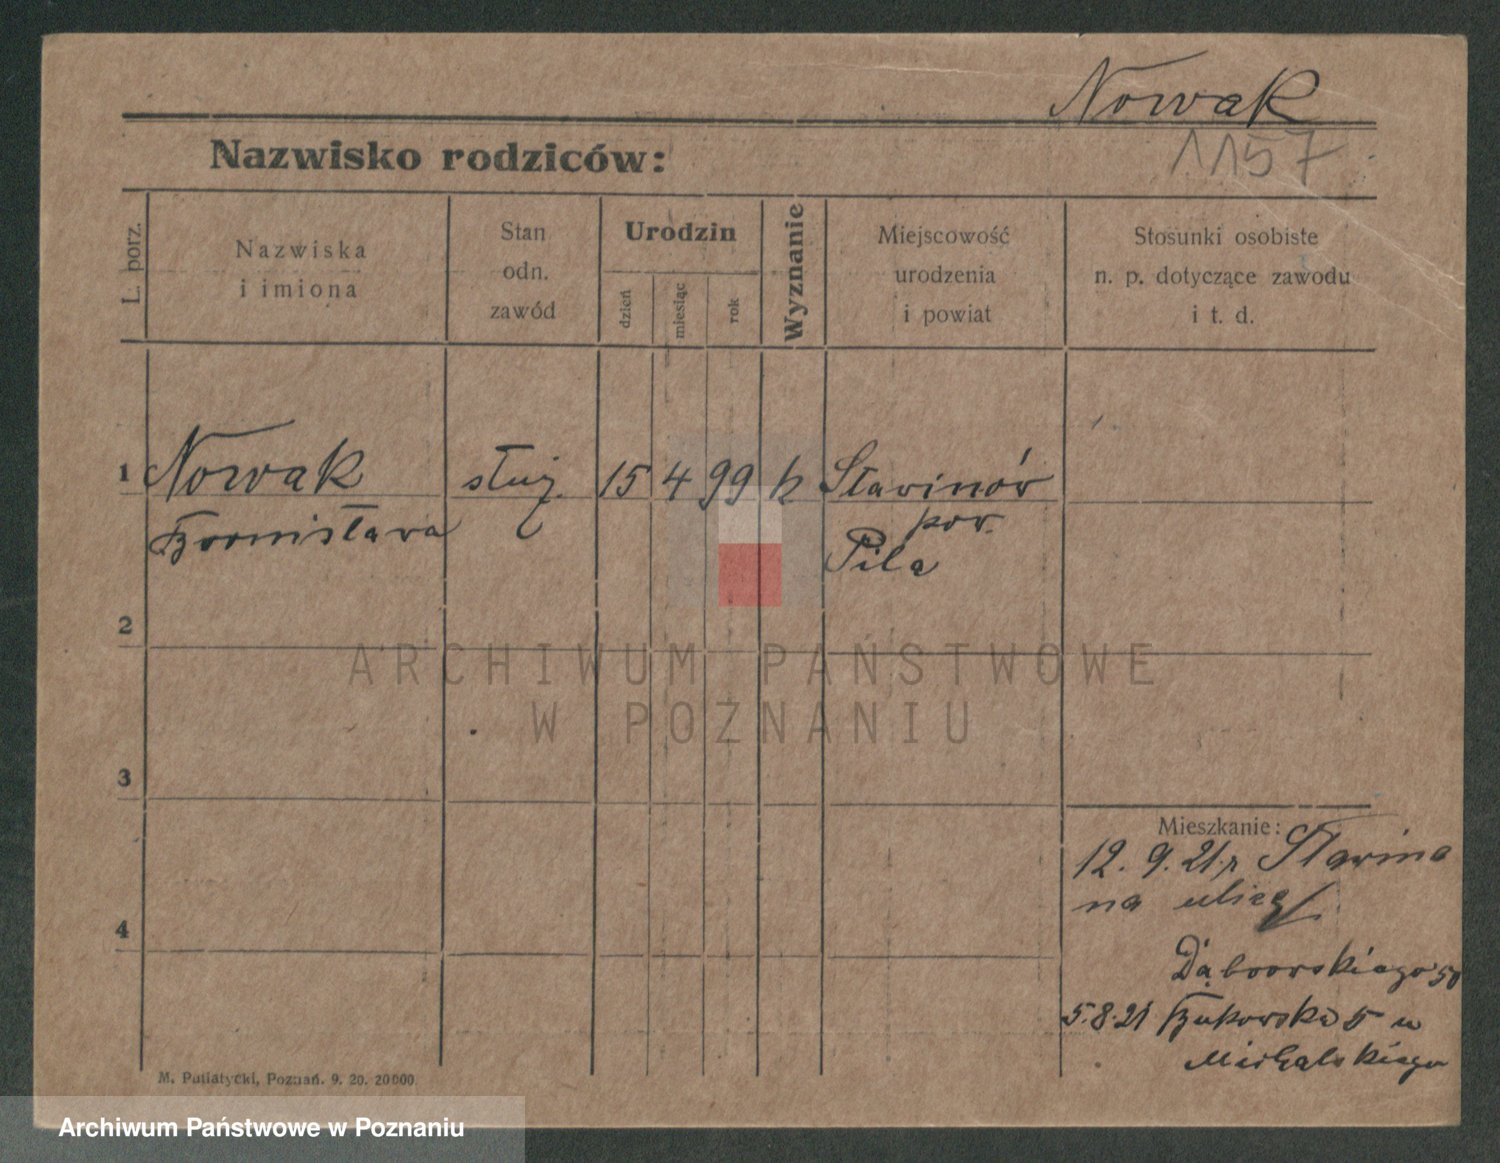 Nowak
1157
Nazwisko rodziców:
L. porz.
Nazwiska
i imiona
Stan
odn.
zawód
Urodzin
dzień
miesiąc
rok
Wyznanie
Miejscowość
urodzenia
i powiat
Stosunki osobiste
n. p. dotyczące zawodu
i t. d.
1 Nowak służ. 15 4 99 k
Bronisława
pow.
Piła
2
ARCHIWUM PAŃSTWOWE
W POZNANIU
3
Mieszkanie:
12. 9. 21 r
na ulicę
4
Dąbrowskiego 50
5.8.21 Bukowska 5 u
Michalskiego
M. Putiatycki, Poznań. 9. 20. 20000.
Archiwum Państwowe w Poznaniu